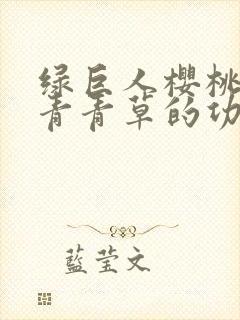 绿巨人櫻桃
青青草的功
藍莹文